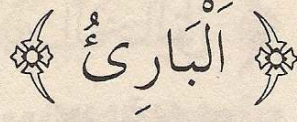 اَلْبَارِئُ